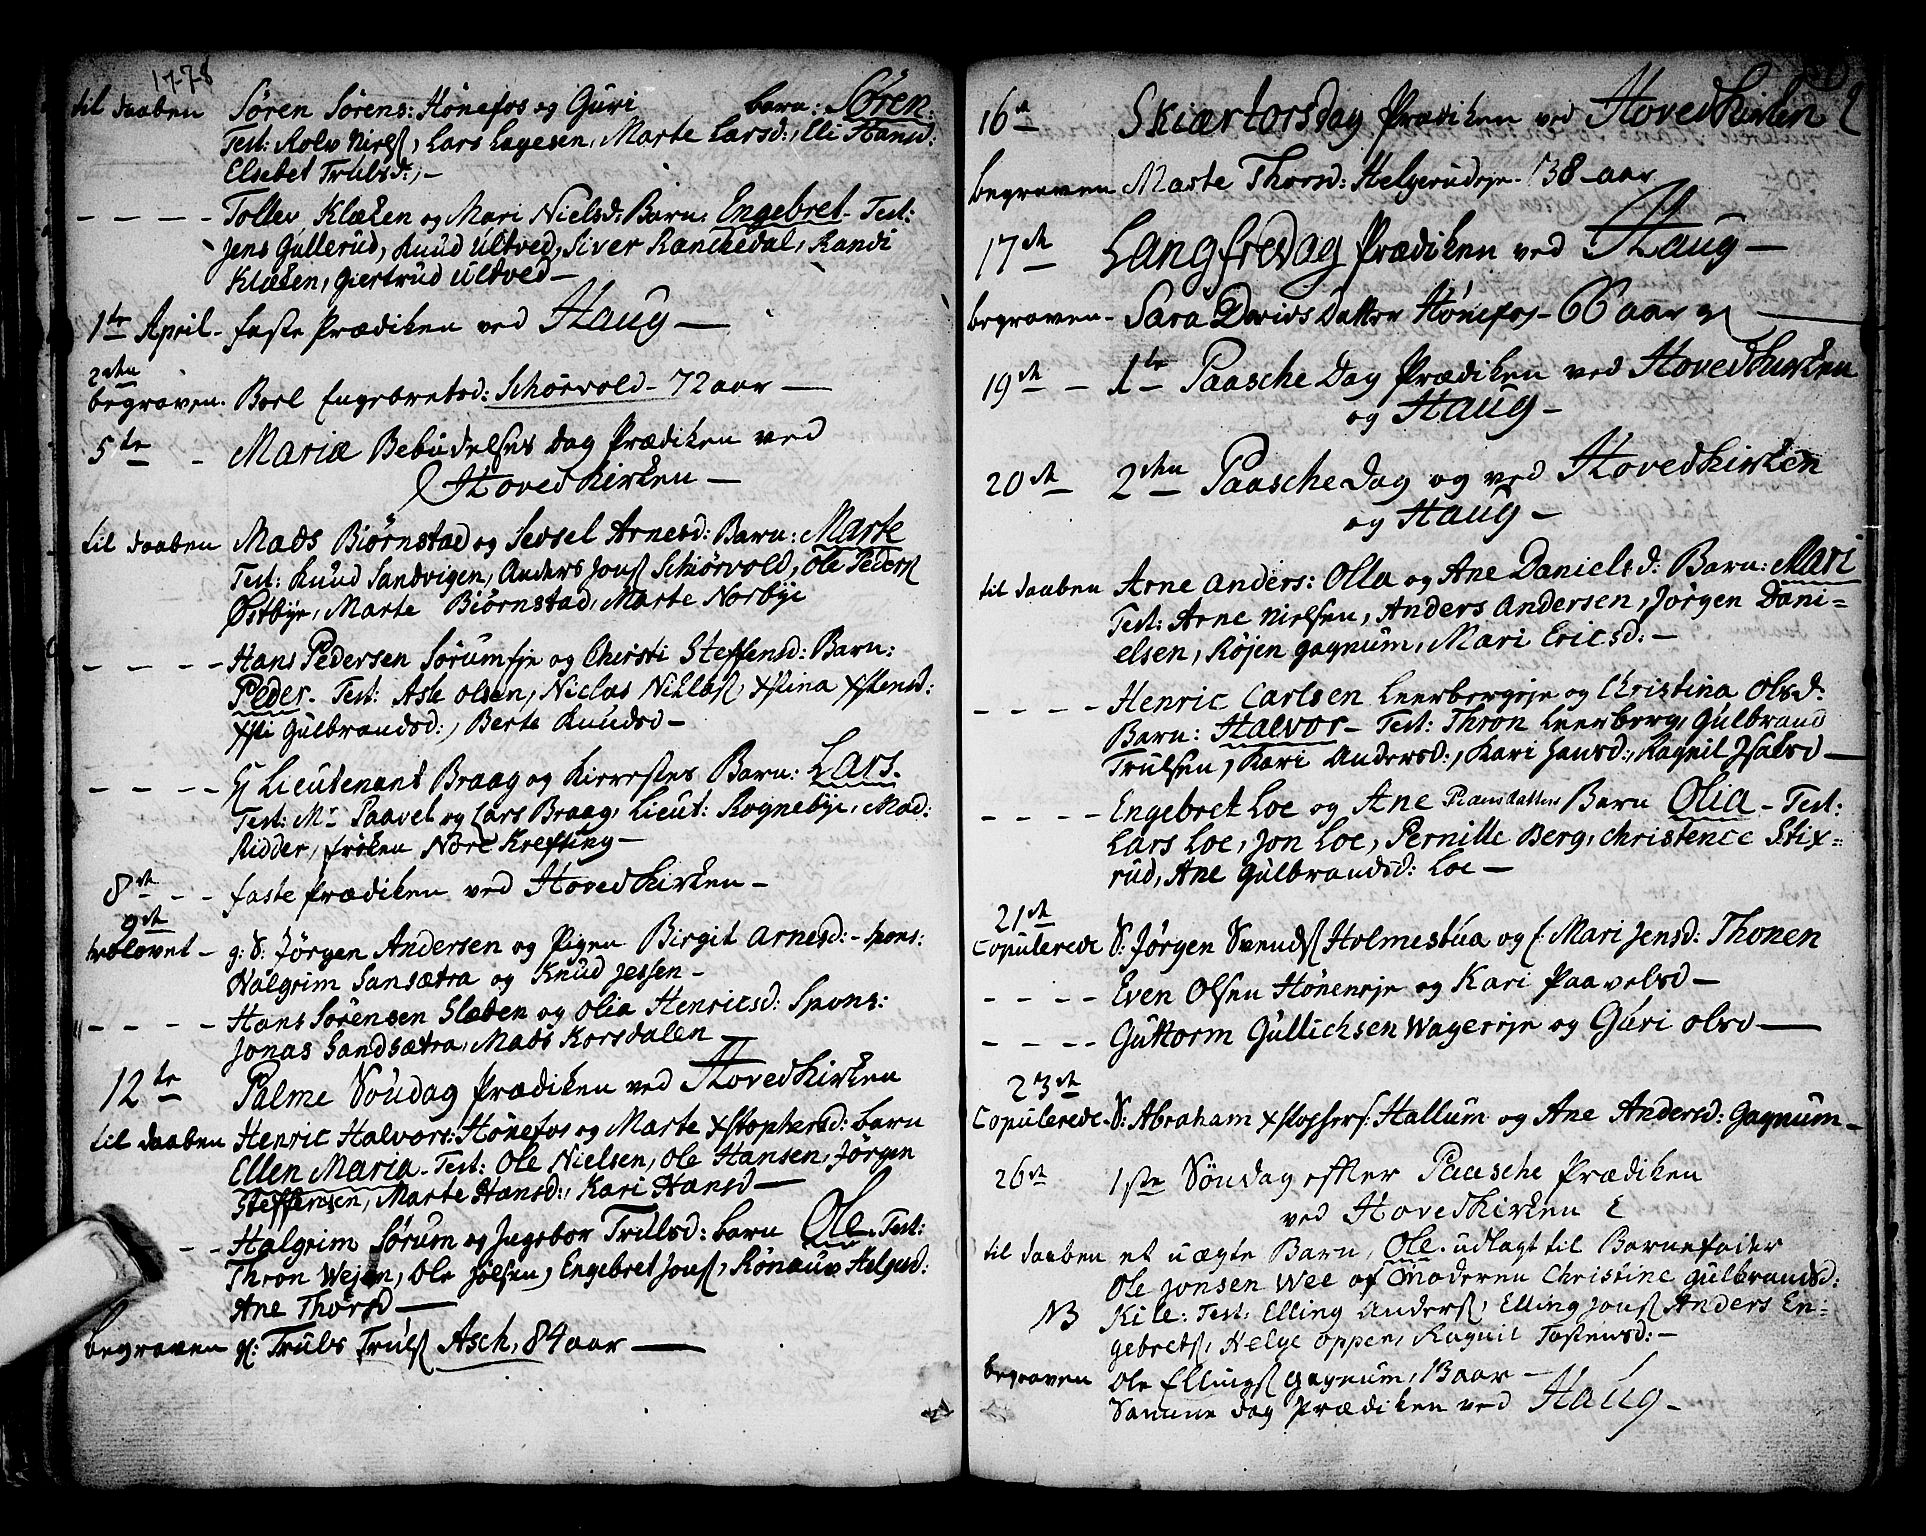 1778
til daaben Søren Sørens: Hønefos og Guri barn: Søren:
Test: Rolv Niels, Lars Lagesen, Marte Larsd:, Elli Hansd:
Elsebet Trulsd:,-
- - - - Tollev Klæken og Mari Nielsd: Barn: Engebret- Test:
Jens Gullerud, Knud Ultved, Siver Ranckedal, Randi
Klæken, Giertrud Ultved-
1te April- faste Prædiken ved Haug-
2den
begraven. Boel Engebretsd: Schørvold- 72 aar-
5te - Mariæ Bebudelses Dag Prædiken ved
Hovedkirken-
til daaben Mads Biørnstad og Sedsel Arnesd: Barn: Marte
Test: Knud Sandvigen, Anders Jons Schiørvold, Ole Peders
Østbye, Marte Biørnstad, Marte Norbye
- - - - Hans Pedersen Sørumeje og Christi Steffensd: Barn:
Peder. Test: Asle Olsen, Niclas Niklas, Xstina Xstensd:
Xsti Gulbrandsd:, Berte Knudsd-
- - - - Hr Lieutenant Braag og Kierestes Barn: Lars.
Test: Mr Paavel og Lars Braag, Lieut: Rognebye, Mad:
Ridder, frøken Nore Krefting-
8de - - faste prædiken ved Hovedkirken-
9de
trolovet- g: S: Jørgen Andersen og Pigen Birgit Arnesd:- Spons:
Halgrim Sansætra og Knud Jessen-
- - - - Hans Sørensen Slaben og Olia Henricsd: Spons:
Jonas Sandsætra, Mads Korsdalen-
12te Palme Søndag Prædiken ved Hovedkirken
til daaben Henric Halvors: Hønefos og Marte Xstophersd: barn
Ellen Maria- Test: Ole Nielsen, Ole Hansen, Jørgen
Steffensen, Marte Hansd:, Kari Hansd-
- - Halgrim Sørum og Ingebor Trulsd: barn Ole. Test:
Thron Wejen, Ole Joelsen, Engebret Jons, Rønnauv Helgesd:
Ane Thorsd-
begraven g: Truls Truls Asch, 84 aar-
16de Skiærtorsdag Prædiken ved Hovedkirken
begraven Marte Thorsd: Helgerudeje- 38- aar
17de Langfredag Prædiken ved Haug-
begraven- Sara Davids Datter Hønefos- 66 aar
19de - 1te Paasche Dag Prædiken ved Hovedkirken
og Haug-
20de 2den Paasche Dag og ved Hovedkirken
og Haug-
til daaben Arne Anders: Olla og Ane Danielsd: Barn: Mari
Test: Arne Nielsen, Anders Andersen, Jørgen Dani=
elsen, Røjen Gagnum, Mari Ericsd:-
- - - - Henric Carlsen Leerbergeje og Christina Olsd:
Barn: Halvor- Test: Thron Leerberg, Gulbrand
Trulsen, Kari Andersd:, Kari Hansd:, Ragnil Isaksd-
- - - - Engebret Loe og Ane Hansdatters Barn Olia- Test:
Lars Loe, Jon Loe, Pernille Berg, Christence Stix=
rud, Ane Gulbrandsd: Loe-
21de
Copulerede S: Jørgen Svends Holmestua og f: Mari Jensd: Thonen
- - - - Even Olsen Høneneje og Kari Paavelsd-
- - - - Guttorm Gullichsen Wagereje og Guri Olsd-
23de
Copulerede- S: Abraham Xstoffers: Hallum og Ane Andersd: Gagnum-
26de 1ste Søndag efter Paasche Prædiken
ved Hovedkirken
til daaben et uægte Barn, Ole. udlagt til Barnefader
Ole Jonsen Wee af Moderen Christine Gulbrandsd:
NB Kile: Test: Elling Anders, Elling Jons, Anders En-
gebrets, Helge Oppen, Ragnil Tostensd:-
begraven Ole Ellings Gagnum, 13 aar-
Samme dag Prædiken ved Haug-